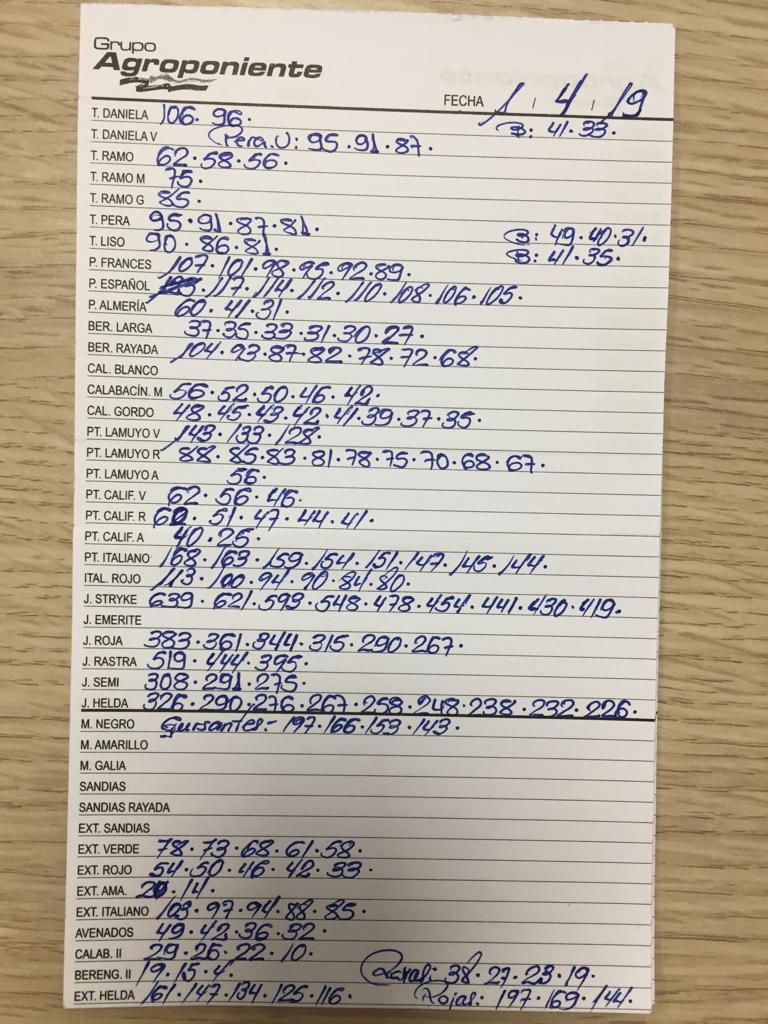 Grupo
Agroponiente
FECHA 1 / 4 / 19
T. DANIELA 106. 96. B: 41.33.
T. DANELA V Pera.U: 95.91.87.
T. RAMO 62.58.56.
T. RAMO M 75.
T. RAMO G 85.
T. PERA 95.91.87.81. B: 49.40.31.
T. LISO 90.86.81. B: 41.35.
P. FRANCES 107.101.98.95.92.89.
P. ESPAÑOL 117.114.112.110.108.106.105.
P. ALMERÍA 60.41.31.
BER. LARGA 37.35.33.31.30.27.
BER. RAYADA 104.93.87.82.78.72.68.
CAL. BLANCO
CALABACÍN. M 56.52.50.46.42.
CAL. GORDO 48.45.43.42.41.39.37.35.
PT. LAMUYO V 143.133.128.
PT. LAMUYO R 88.85.83.81.78.75.70.68.67.
PT. LAMUYO A 56.
PT. CALIF. V 62.56.46.
PT. CALIF. R 60.51.47.44.41.
PT. CALIF. A 40.25.
PT. ITALIANO 168.163.159.154.151.147.145.144.
ITAL. ROJO 113.100.94.90.84.80.
J. STRYKE 639.621.593.548.478.454.441.430.419.
J. EMERITE
J. ROJA 383.361.344.315.290.267.
J. RASTRA 519.444.395.
J. SEMI 308.291.275.
J. HELDA 326.290.276.267.258.248.238.232.226.
M. NEGRO Guisantes.- 197.166.153.143.
M. AMARILLO
M. GALIA
SANDIAS
SANDIAS RAYADA
EXT. SANDIAS
EXT. VERDE 78.73.68.61.58.
EXT. ROJO 54.50.46.42.33.
EXT. AMA. 20.14.
EXT. ITALIANO 103.97.94.88.85.
AVENADOS 49.42.36.32.
CALAB. II 29.26.22.10.
BERENG. II 19.15.4. 38.27.23.19.
EXT. HELDA 161.147.134.125.116. Rojas: 197.169.144.